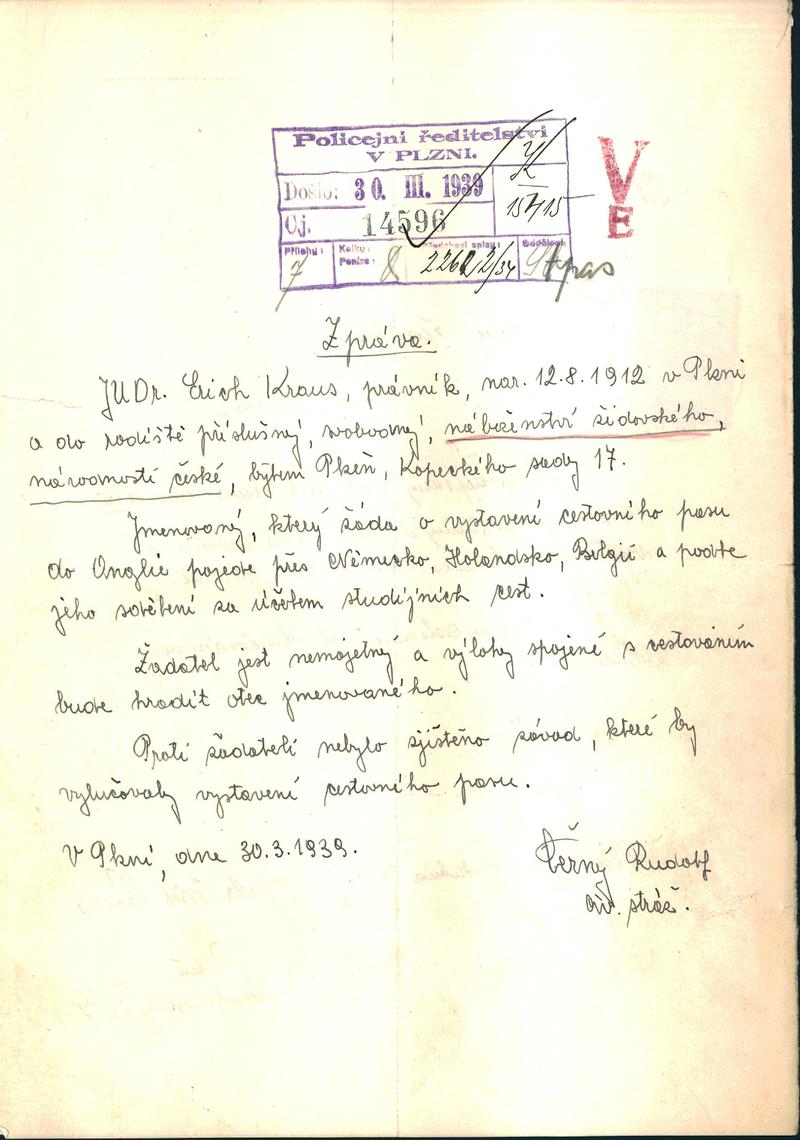 Policejní ředitelství
V PLZNI.
Došlo: 30. III. 1939
Čj. 14596
15/15
Přílohy: Kolku: Předchozí spisy: Oddělení:
Peníze:
7 2261/2/34 pas
V
E
Zpráva.
JUDr. Erich Kraus, právník, nar. 12.8.1912 v Plzni
a do rodiště příslušný, svobodný, náboženství židovského,
národnosti české, bytem Plzeň, Kopeckého sady 17.
Jmenovaný, který žádá o vystavení cestovního pasu
do Anglie pojede přes Německo, Holandsko, Belgii a podle
jeho sdělení za účelem studijních cest.
Žadatel jest nemajetný a výlohy spojené s cestováním
bude hradit otec jmenovaného.
Proti žadateli nebylo zjištěno závad, které by
vylučovaly vystavení cestovního pasu.
V Plzni, dne 30.3.1939.
Černý Rudolf
stráž.